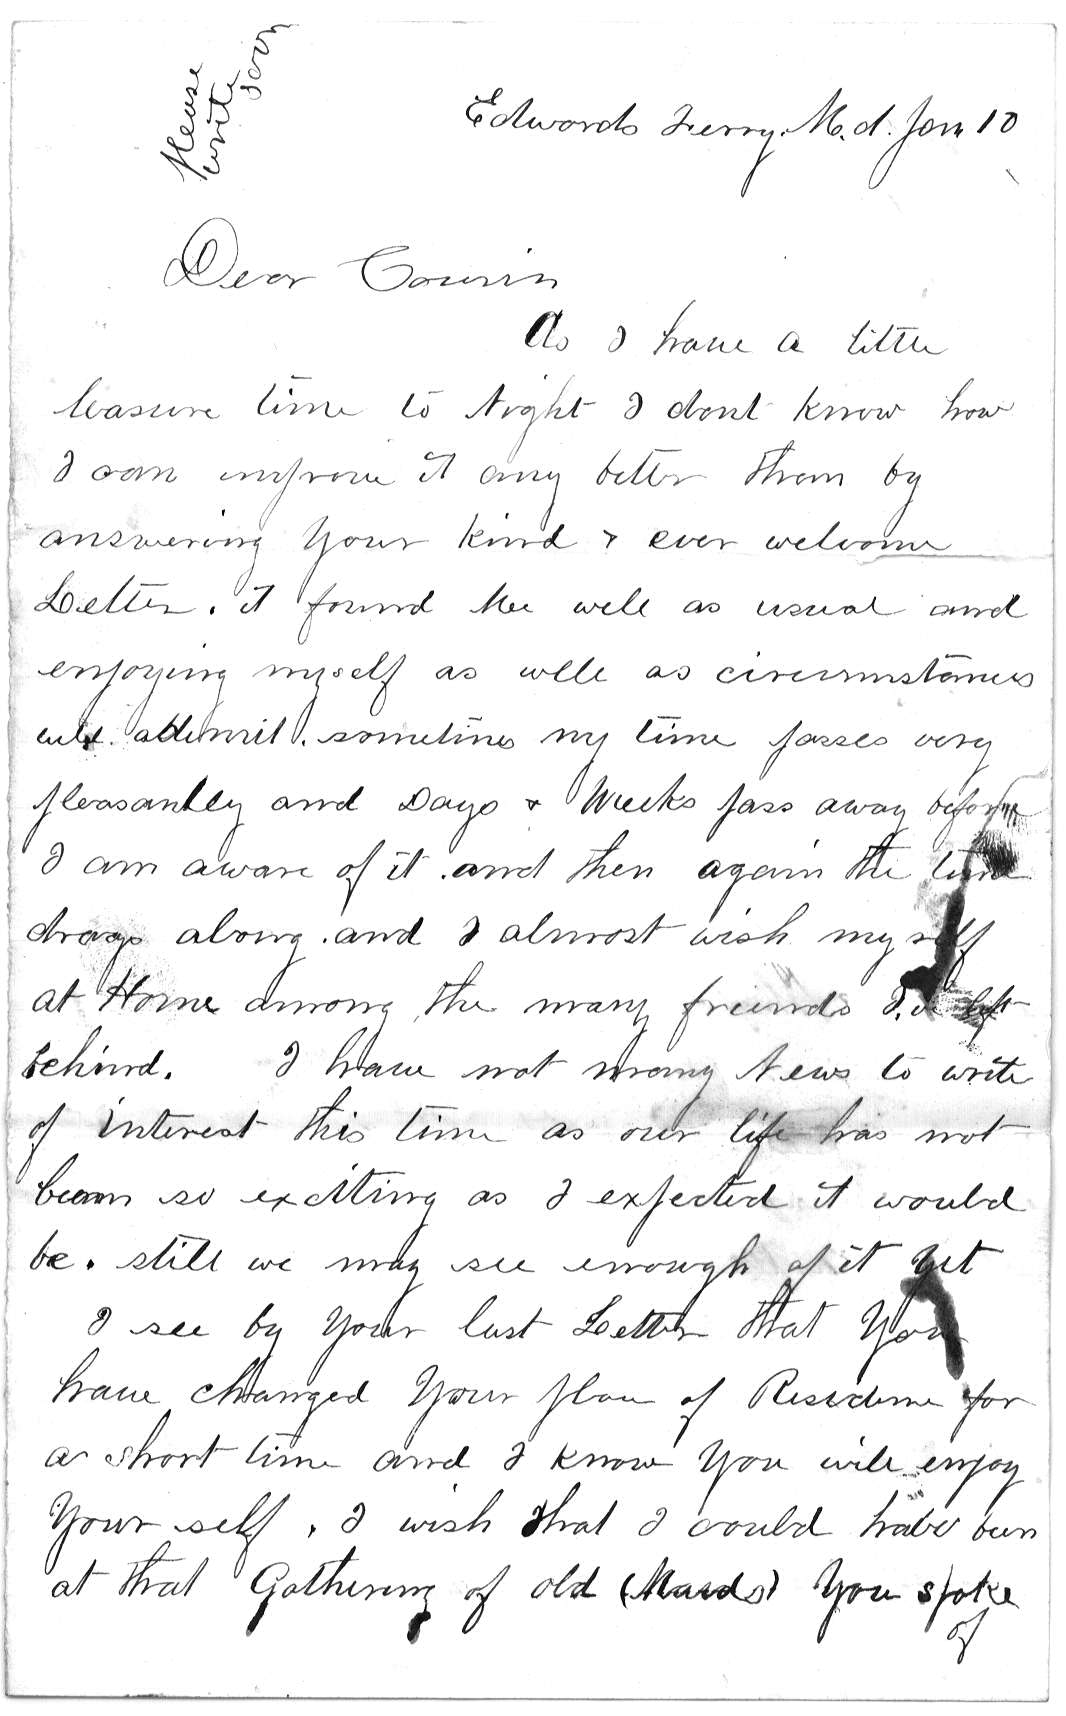 Please
write
soon
Edwards Ferry. M.d. Jan 10
Dear Cousin
As I have a little
leasure time to Night I dont know how
I can improve it any better than by
answering Your kind & ever welcome
Letter. it found Me well as usual and
enjoying myself as wlle as circumstances
will admit. sometimes my time passes very
pleasantley and Days & Weeks pass away before
I am aware of it. and then again the time
drags along. and I almost wish my self
at Home among the many friends I've left
behind. I have not many News to write
of interest this time as our life has not
been so exciting as I expected it would
be. still we may see enough of it Yet
I see by Your last Letter that You
have changed Your place of Residence for
a short time and I know You will enjoy
Your self. I wish that I could have been
at that Gathering of old (Maids) You spoke
of